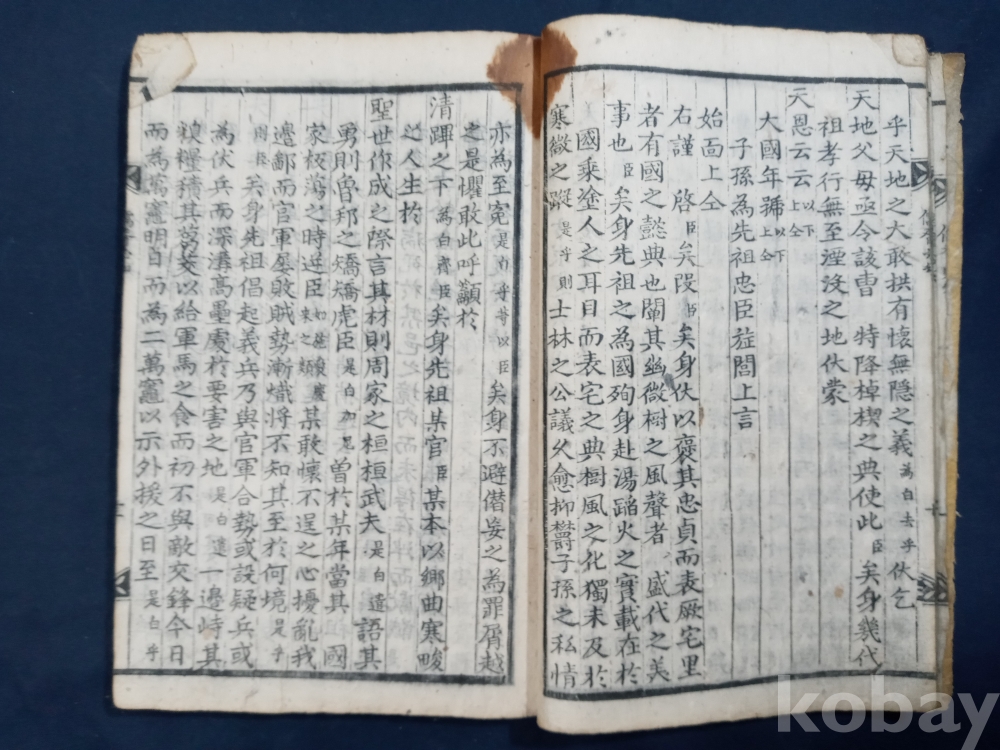 乎天地之大敢拱有懷無隱之義為白去乎伏乞
天地父母亟令該曺 特降棹楔之典使此臣矣身幾代
祖孝行無至湮没之地伏蒙
天恩云云以下上仝
大國年號以下上仝
子孫為先祖忠臣旌閭上言
始面上仝
右謹 啓臣矣段臣矣身伏以褒其忠貞而表厥宅里
者有國之懿典也闡其幽微樹之風聲者 盛代之美
事也臣矣身先祖之為國殉身赴湯蹈火之實載在於
國乘塗人之耳目而表宅之典樹風之化獨未及於
寒微之蹤是乎則士林之公議久愈抑欝子孫之私情
亦為至寃是乎等以臣矣身不避僣妄之為罪屑越
之是懼敢此呼籲於
清蹕之下為白齊臣矣身先祖某官臣某本以鄉曲寒畯
之人生於
聖世作成之際言其材則周家之桓桓武夫是白遣語其
勇則魯邦之矯矯虎臣是白如是曾於某年當其 國
家板蕩之時逆臣某敢懷不逞之心擾亂我
邊鄙而官軍屡敗賊勢漸熾將不知其至於何境是乎
矣身先祖倡起義兵乃與官軍合勢或設疑兵或
為伏兵而深溝高壘處於要害之地是白遣一邊峙其
糗糧積其芻茭以給軍馬之食而初不與敵交鋒今日
而為萬竈明日而為二萬竈以示外援之日至是白乎
kobay